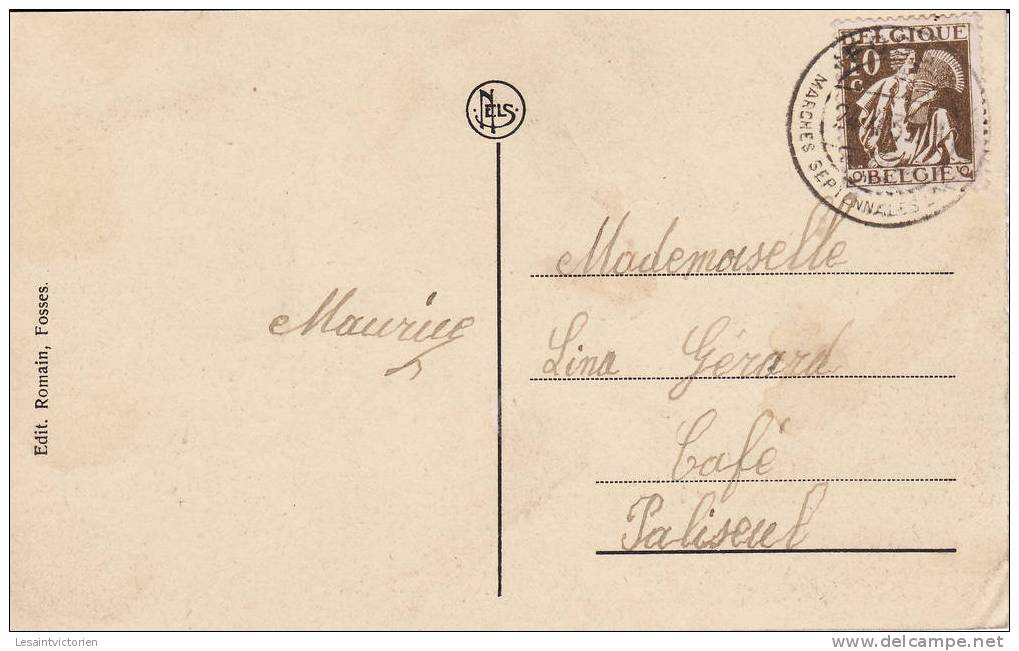 BELGIQUE
10
C
BELGIE
MARCHES SEPTENNALES
NELS
Mademoiselle
Maurice
Lina Gérard
Café
Paliseul
Edit. Romain, Fosses.
Lesaintvictorien
www.delcampe.net